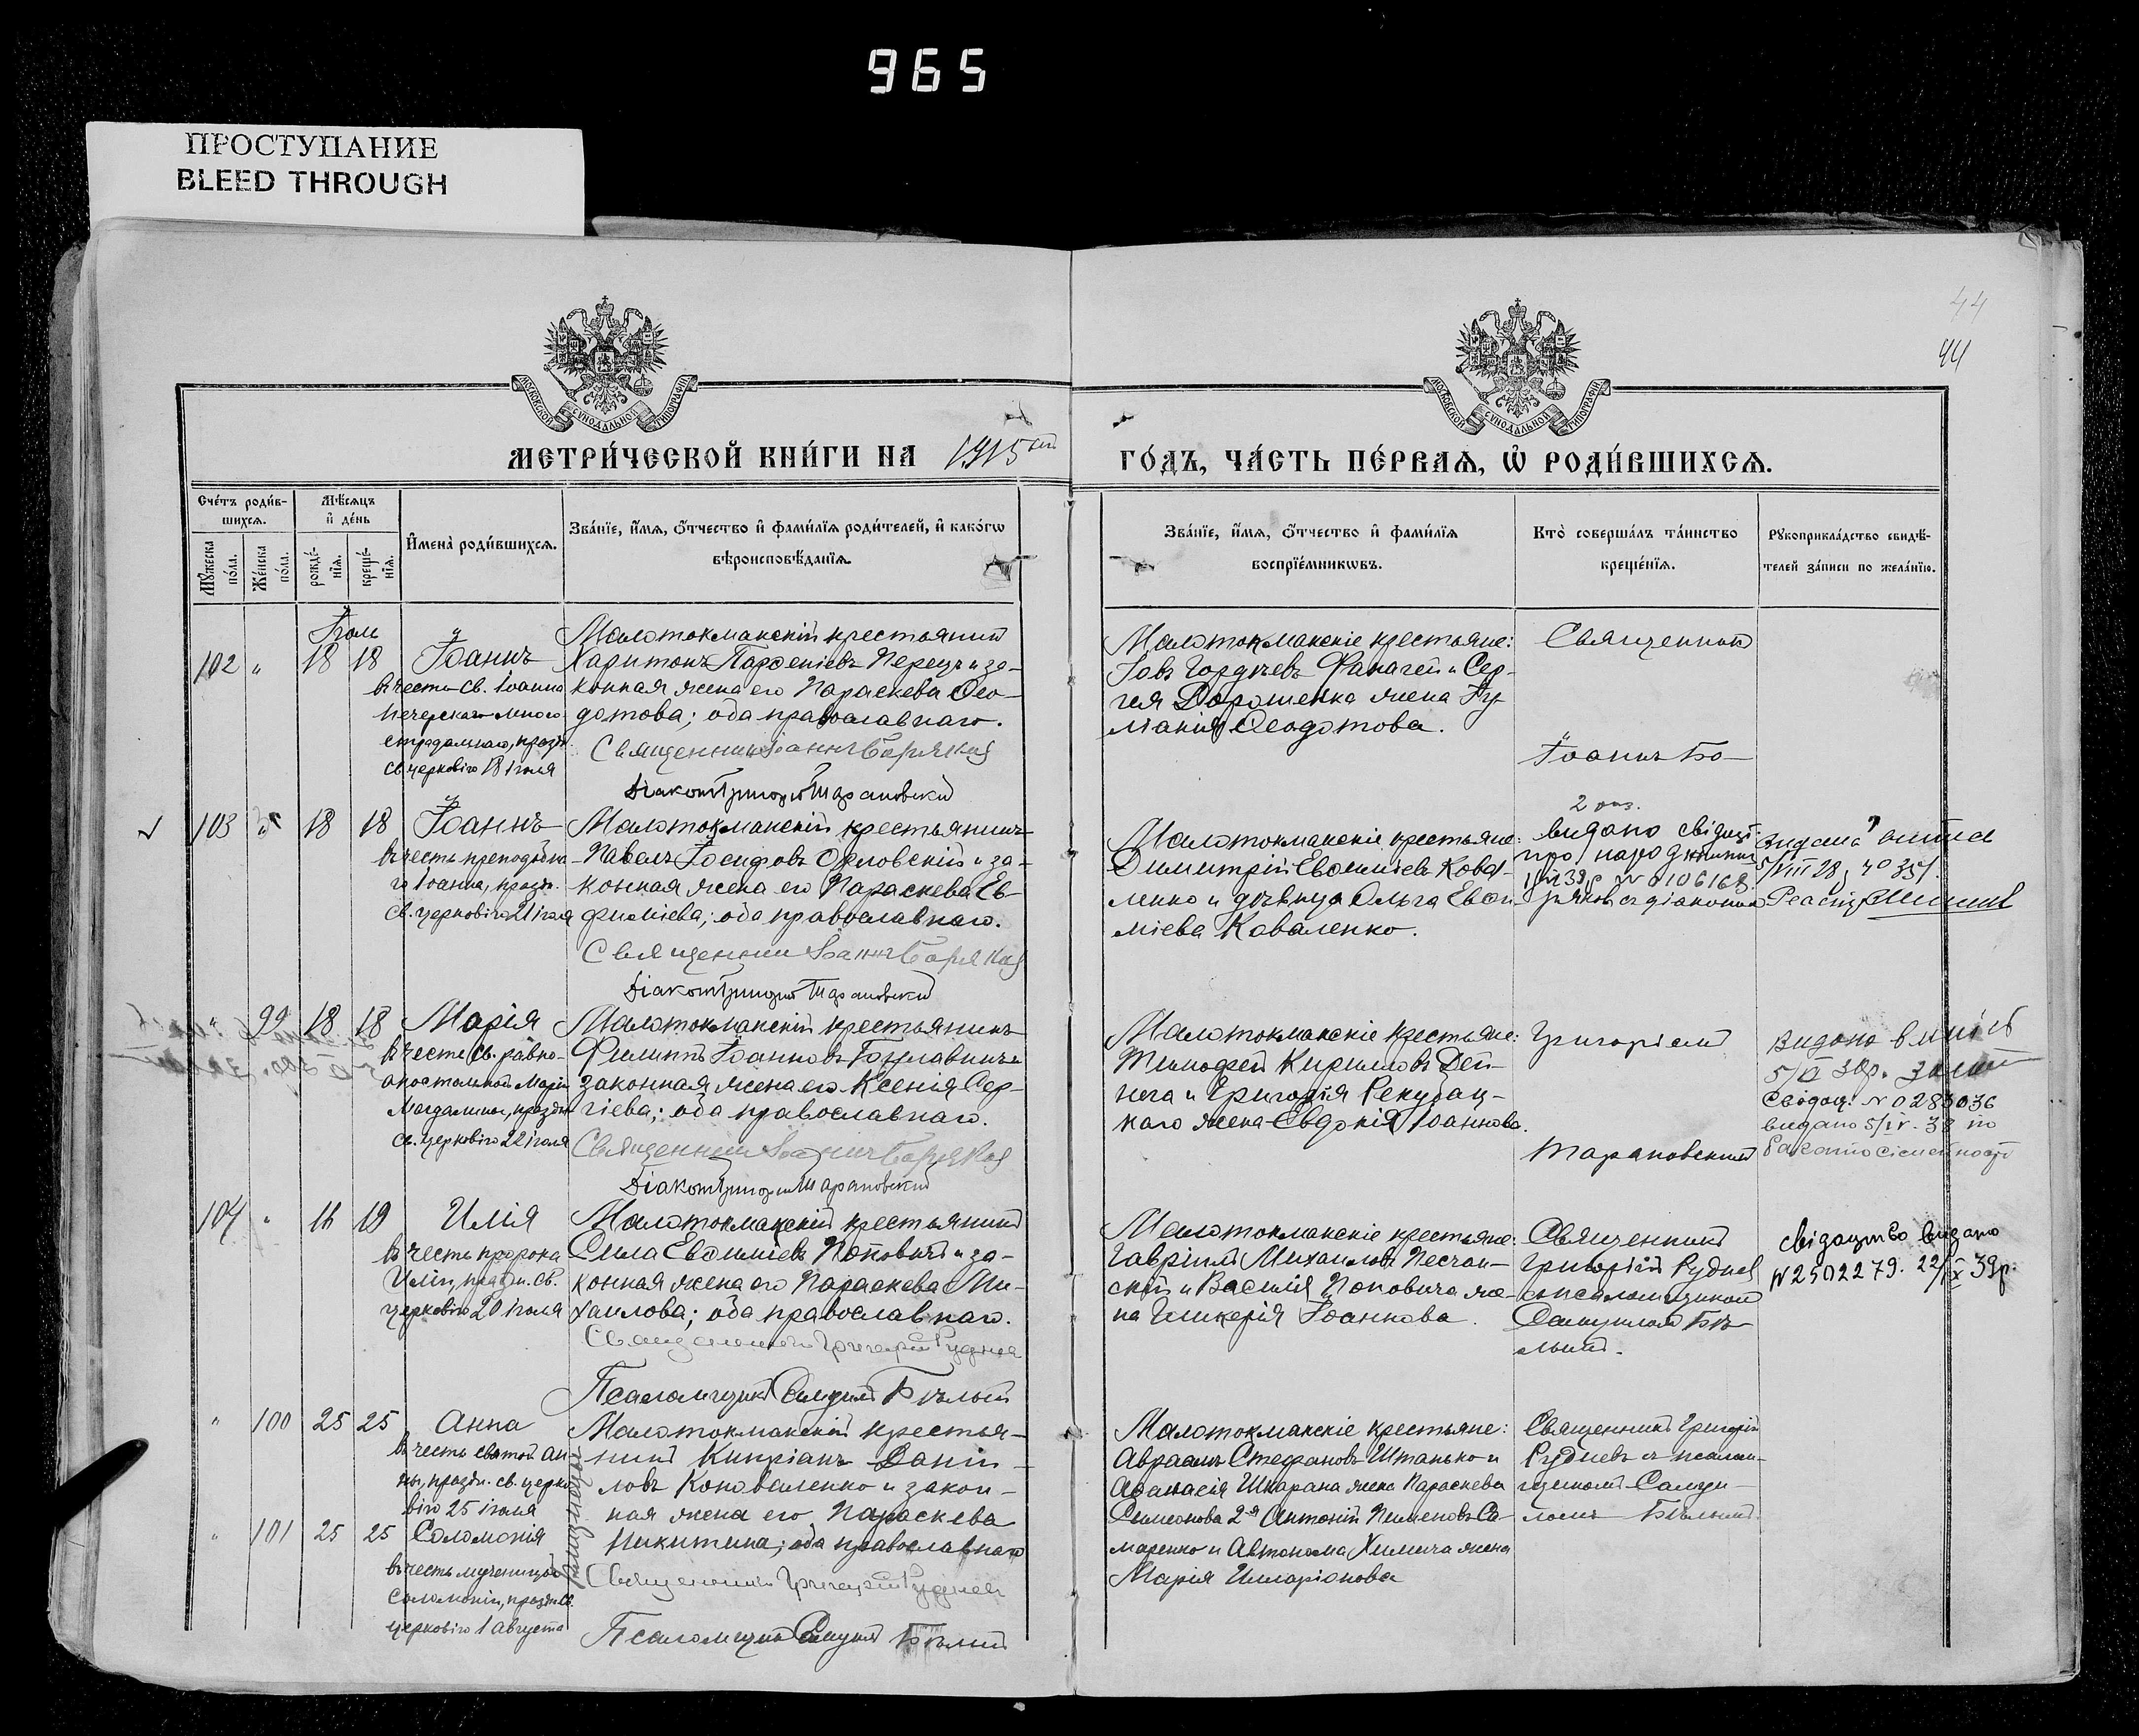 965
ПРОСТУПАНИЕ
BLEED THROUGH
44
44
МОСКОВСКОЙ СѴНОДАЛЬНОЙ ТИПОГРАФІИ
МОСКОВСКОЙ СѴНОДАЛЬНОЙ ТИПОГРАФІИ
МЕТРИ́ЧЕСКОЙ КНИ́ГИ НА 1915 ГО́ДЪ, ЧА́СТЬ ПЕ́РВАѦ, Ѡ҆ РОДИ́ВШИХСѦ.
Сче́тъ роди́в-
шихсѧ.
Мѣ́сѧцъ
и҆ де́нь
Мꙋ́жеска
по́ла.
Же́нска
по́ла.
рожде́-
нїѧ.
креще́-
нїѧ.
И҆мена̀ роди́вшихсѧ.
Зва́нїе, и҆́мѧ, ѻ҆́тчество и҆ фами́лїѧ роди́телей, и҆ како́гѡ
вѣроисповѣ́данїѧ.
Зва́нїе, и҆́мѧ, ѻ҆́тчество и҆ фами́лїѧ
воспрїе́мникѡвъ.
Кто̀ соверша́лъ та́инство
креще́нїѧ.
Рꙋкоприкла́дство свидѣ́-
телей за́писи по жела́нїю.
Іюль
102 " 18 18 Іоаннъ
въ честь св. Іоанна
Печерскаго много
страдальнаго, праздн.
св. церковію 18 іюля
Малотокмакскій крестьянинъ
Харитонъ Парѳеніевъ Перецъ и за-
конная жена его Параскева Ѳео-
дотова; оба православнаго.
Священникъ Іоаннъ Боряков
Діаконъ Григорій Тарановскій
Малотокмакскіе крестьяне:
Іовъ Гордѣевъ Фанагей и Сер-
гея Дорошенка жена Іу-
лианія Ѳеодотова.
Священникъ
Іоаннъ Бо-
103 18 18 Іоаннъ
въ честь преподобна
го Іоанна, праздн.
св. церковію 21 іюля
Малотокмакскій крестьянинъ
Павелъ Іосифовъ Орловскій и за-
конная жена его Параскева Ев-
фиміева; оба православнаго.
Священник Іоаннъ Боряков
Діаконъ Григорій Тарановскій
Малотокмакскіе крестьяне:
Димитрій Евѳиміевъ Кова-
ленко и дѣвица Ольга Евѳи
міева Коваленко.
2 раз.
видано свідоцт.
про народження
39р № 0106168.
ряковъ съ діакономъ
Видана
5/VIII 28
" 99 18 18 Марія
въ честь св. равно-
апостольной Маріи
Магдалины, праздн.
св. церковію 22 іюля
Малотокмакскій крестьянинъ
Филиппъ Іоанновъ
законная жена его Ксенія Сер-
гіева; оба православнаго.
Священник Іоаннъ Боряков
Діаконъ Григорій Тарановскій
Малотокмакскіе крестьяне:
Тимофей Кириловъ Дей-
нега и Григорія Рекубац-
каго жена Евдокія Іоаннова.
Григоріемъ
Тарановскимъ
Видано
Свідоц. № 0283036
видано 5/IV - 38
104 " 18 19 Илія
въ честь пророка
Иліи, праздн. св.
церковію 20 іюля
Малотокмакскій крестьянинъ
Сила Евѳиміевъ Поповичъ и за-
конная жена его Параскева Ми-
хаилова; оба православнаго.
Священникъ Григорій Руднев
Псаломщикъ Самуилъ Бѣлый
Малотокмакскіе крестьяне:
Гавріилъ Михаиловъ Песчан-
скій и Василія Поповича же-
на Гликерія Іоаннова.
Священникъ
Григорій Руднев
съ псаломщикомъ
Самуиломъ Бѣ-
лымъ.
Свідоцтво видано
№ 2502279. 22/IX 39р.
" 100 25 25 Анна
въ честь святой Ан-
ны, праздн. св. церко
вію 25 іюля
Малотокмакскій крестья-
нинъ Кипріанъ Даніи-
ловъ Коноваленко и закон-
ная жена его Параскева
Никитина; оба православнаго
Малотокмакскіе крестьяне:
Авраамъ Стефановъ Штанько и
Аѳанасія Шкарана жена Параскева
Симеонова 2-я Антоній Пименовъ Са-
маренко и Автонома Химича жена
Марія Илларіонова
Священникъ Григорій
Рудневъ съ псалом-
щикомъ Самуи-
ломъ Бѣлымъ.
" 101 25 25 Соломонія
въ честь мученицы
Соломоніи, праздн. св.
церковію 1 Августа
Священникъ Григорій Рудневъ
Псаломщикъ Самуилъ Бѣлый